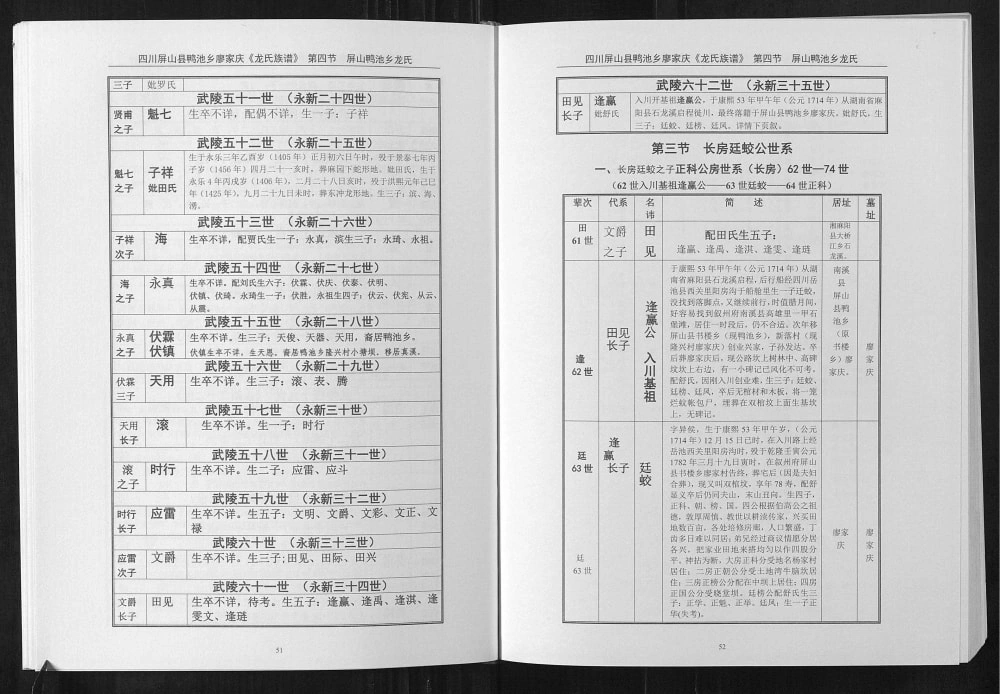 四川屏山县鸭池乡廖家庆《龙氏族谱》 第四节 屏山鸭池乡龙氏
三子 妣罗氏
武陵五十一世 （永新二十四世）
贤甫之子 魁七 生卒不详，配偶不详，生一子：子祥
武陵五十二世 （永新二十五世）
魁七之子 子祥 妣田氏
生于永乐三年乙酉岁（1405年）正月初六日午时，殁于景泰七年丙
子岁（1456年）四月二十一亥时，葬麻园下蛇形地。妣田氏，生于
永乐4年丙戌岁（1406年），二月二十八日亥时，殁于洪熙元年己巳
年（1425年），九月二十九日未时，葬东冲龙形地。生三子：滨、海、
湧。
武陵五十三世 （永新二十六世）
子祥次子 海 生卒不详，配贾氏生一子：永真，滨生三子：永琦、永祖。
武陵五十四世 （永新二十七世）
海之子 永真 生卒不详。配刘氏生六子：伏霖、伏庆、伏泰、伏明、
伏镇、伏绮。永琦生一子：伏胜，永祖生四子：伏云、伏宪、从云、
从震。
武陵五十五世 （永新二十八世）
永真之子 伏霖 伏镇 生卒不详。生三子：天俊、天器、天用，裔居鸭池乡。
伏镇生卒不详，生天恩。裔居鸭池乡隆兴村小塘坝，移居真溪。
武陵五十六世 （永新二十九世）
伏霖三子 天用 生卒不详。生三子：滚、表、腾
武陵五十七世 （永新三十世）
天用长子 滚 生卒不详。生一子：时行
武陵五十八世 （永新三十一世）
滚之子 时行 生卒不详。生二子：应雷、应斗
武陵五十九世 （永新三十二世）
时行长子 应雷 生卒不详。生五子：文明、文爵、文彩、文正、文
禄
武陵六十世 （永新三十三世）
应雷次子 文爵 生卒不详。生三子;田见、田际、田兴
武陵六十一世 （永新三十四世）
文爵长子 田见 生卒不详，待考。生五子：逢赢、逢禹、逢淇、逢
雯文、逢琏
51
四川屏山县鸭池乡廖家庆《龙氏族谱》 第四节 屏山鸭池乡龙氏
武陵六十二世 （永新三十五世）
田见长子 逢赢 妣舒氏
入川开基祖逢赢公，于康熙53年甲午年（公元1714年）从湖南省麻
阳县石龙溪启程徙川，最终落籍于屏山县鸭池乡廖家庆。妣舒氏，生
三子：廷蛟、廷榜、廷凤。详情下页叙。
第三节 长房廷蛟公世系
一、长房廷蛟之子正科公房世系（长房）62世—74世
（62世入川基祖逢赢公——63世廷蛟——64世正科）
辈次 代系 名讳 简 述 居址 墓址
田61世 文爵之子 田见 配田氏生五子：
逢赢、逢禹、逢淇、逢雯、逢琏
湘麻阳县大桥江乡石龙溪。
逢62世 田见长子 逢赢公 入川基祖
于康熙53年甲午年（公元1714年）从湖
南省麻阳县石龙溪启程，后行船经四川岳
池县西关里阳房沟于船舱里生一子廷蛟。
没找到落脚点，又继续前行，时值腊月间，
好容易找到叙州府南溪县高雄里一甲石
堡滩，居住一时段后，仍不合适。次年移
屏山县书楼乡（现鸭池乡），新落村（现
隆兴村廖家庆）创业兴家，子孙发达。卒
后葬廖家庆后，现公路坎上树林中、高碑
坟坎上右边，有一小碑记已风化不可考。
配舒氏，因刚入川创业难，生三子：廷蛟、
廷榜、廷凤，卒后无棺材和木板，将一笼
烂蚊帐包尸，埋葬在双棺坟上面生基坎
上，无碑记。
南溪县屏山县鸭池乡（原书楼乡）廖家庆。
廖家庆
廷63世 逢赢长子 廷蛟
字异侯，生于康熙53年甲午岁，（公元
1714年）12月15日已时，在入川路上经
岳池西关里阳房沟时，殁于乾隆壬寅公元
1782年三月十九日寅时，在叙州府屏山
县书楼乡廖家村告终，葬宅后（因是夫妇
合葬），现又叫双棺坟，享年78寿，配舒
显义卒后仍同夫山，未山丑向。生四子，
正科、朝、榜、国。四公根据伯高公之祖
德，敦厚周慎，教世以耕读传家，兴买田
地数百亩，各处培修房廊，人口繁盛，丁
齿多日难以同居；弟兄经过商议情愿分居
各兴，把家业田地来搭均匀以作四股分
平。神拈为断，大房正科分受地名杨家村
居住；二房正朝公分受土地湾牛脑坎居
住；三房正榜公分配在中坝上居住；四房
正国公分受晓堂坝。廷榜公配舒氏生三
子：正华，正魁、正举。廷凤：生一子正
华(失考)。
廖家庆
廖家庆
廷
63世
52